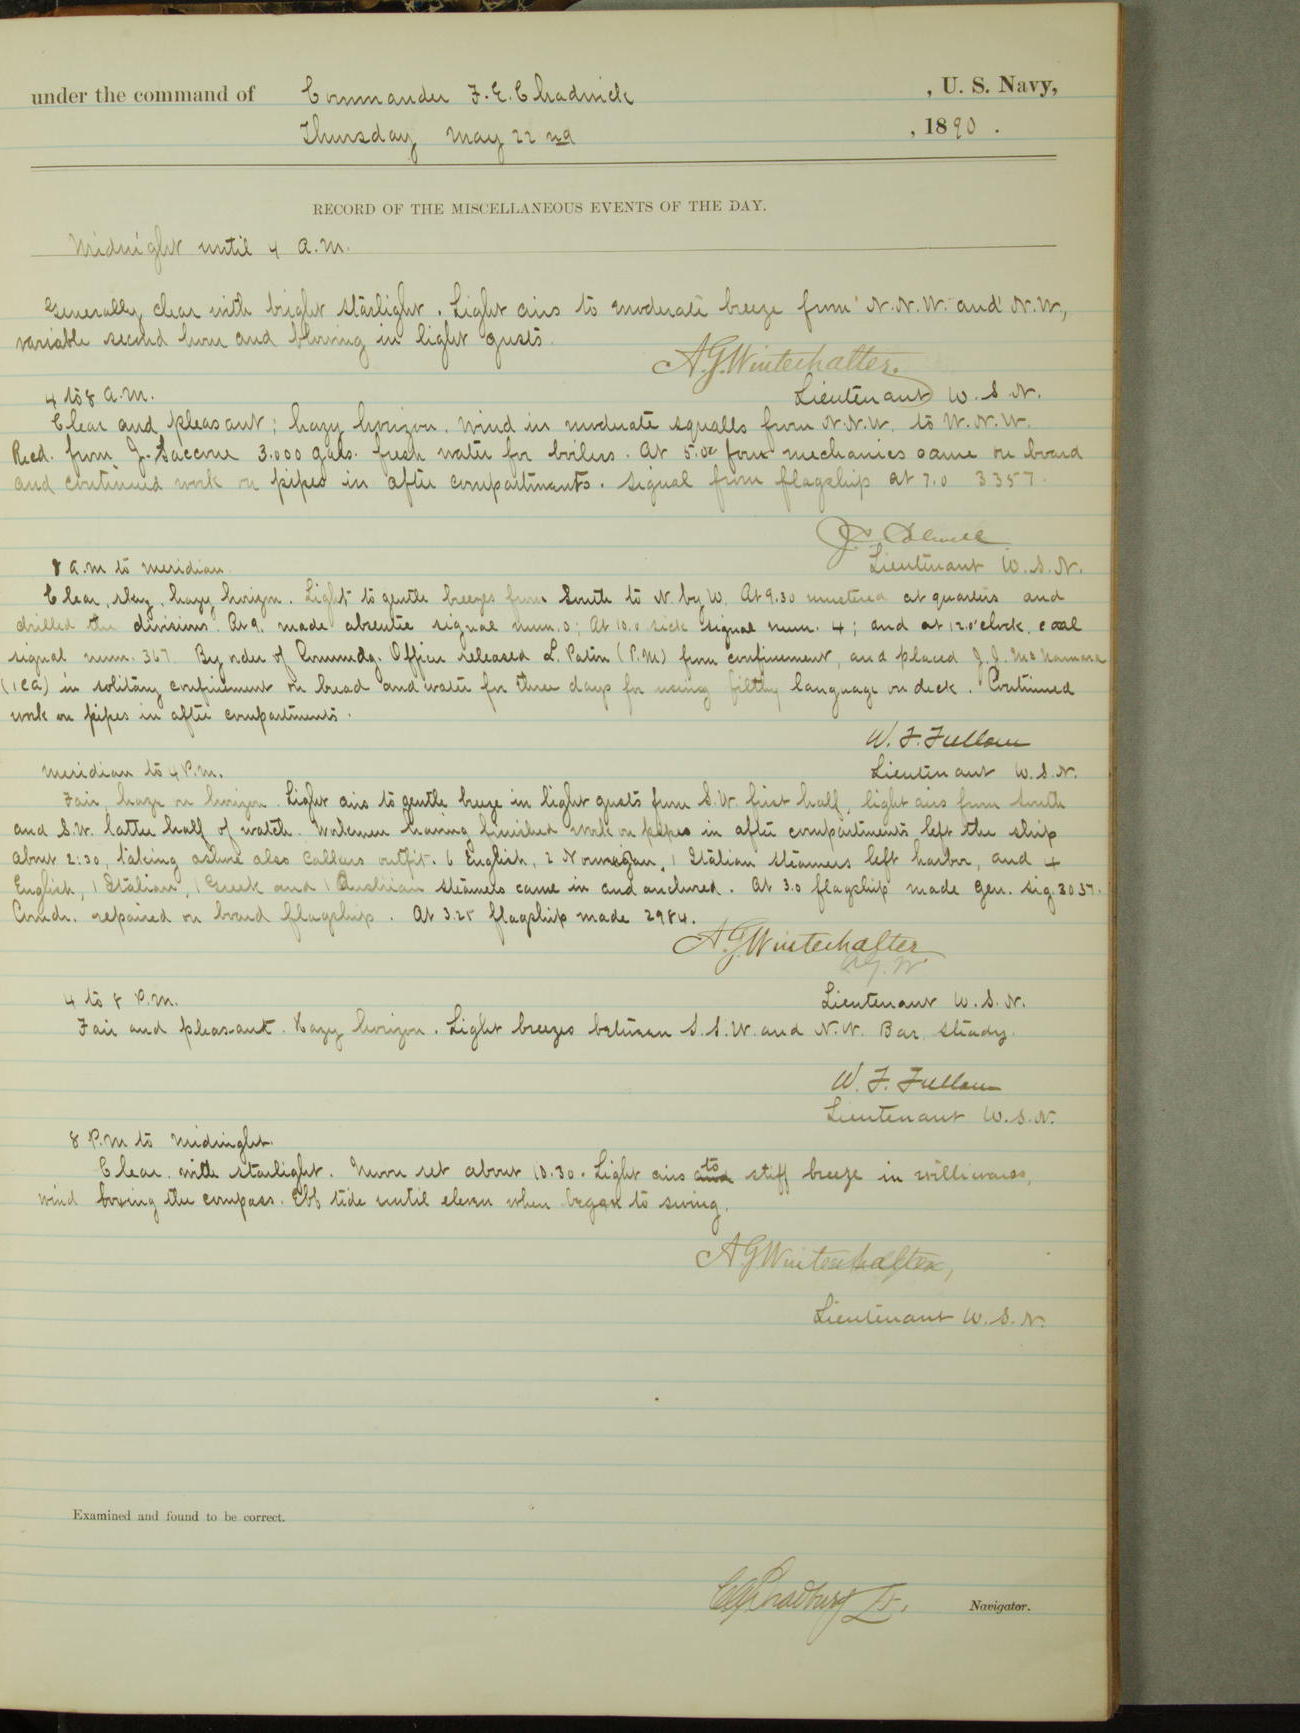 under the command of Commander F. E. Chadwick , U. S. Navy,
Thursday May 22nd , 1890 .
RECORD OF THE MISCELLANEOUS EVENTS OF THE DAY.
Midnight until 4 A.M.
Generally clear with bright starlight. Light airs to moderate breeze from N.N.W. and N.W,
variable second hour and blowing in light gusts.
A.G. Winterhalter.
Lieutenant U.S.N.
4 to 8 A.M.
Clear and pleasant; hazy horizon. Wind in moderate squalls from N.N.W. to W.N.W.
Recd. from J. Saccone 3.000 gals. fresh water for boilers. At 5.00 four mechanics came on board
and continued work on pipes in after compartments. Signal from flagship at 7.0 3357.
Lieutenant U.S.N.
8 A.M to meridian.
Clear sky, hazy horizon. Light to gentle breezes from South to N. by W. At 9.30 mustered at quarters and
drilled the divisions. At 9. made absentee signal num. 0; At 10.0 sick signal num. 4; and at 12.o'clock. coal
signal num. 367. By order of Commdg. Officer released L. Paton (P.M) from confinement, and placed J.J. McNamara
(1 C a) in solitary confinement on bread and water for three days for using filthy language on deck. Continued
work on pipes in after compartments.
W. F. Fullam
Lieutenant U.S.N.
Meridian to 4 P.M.
Fair, haze on horizon. Light airs to gentle breeze in light gusts from S.W. first half, light airs from South
and S.W. latter half of watch. Workmen having finished work on pipes in after compartments left the ship
about 2:30, taking ashore also callers outfit. 6 English, 2 Norwegian, 1 Italian steamers left harbor, and 4
English, 1 Italian, 1 Greek and 1 Austrian steamers came in and anchored. At 3.0 flagship made Gen. sig. 3037.
Comdr. repaired on board flagship. At 3.25 flagship made 2984.
A.G. Winterhalter
A.G.W.
Lieutenant U.S.N.
4 to 8 P.M.
Fair and pleasant. Hazy horizon. Light breezes between S.S.W. and N.W. Bar. steady.
W. F. Fullam
Lieutenant U.S.N.
8 P.M to midnight.
Clear with starlight. Moon set about 10.30. Light airs to stiff breeze in williwaws,
wind boxing the compass. Ebb tide until eleven when began to swing.
A G Winterhalter,
Lieutenant U.S.N.
Examined and found to be correct.
Navigator.